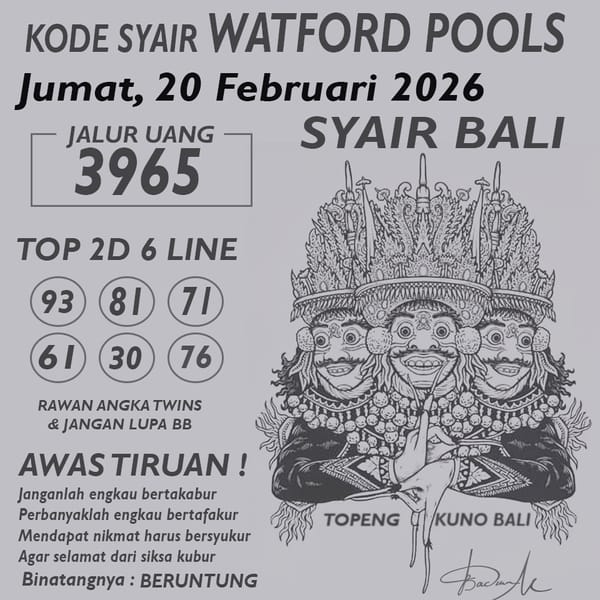 KODE SYAIR WATFORD POOLS
Jumat, 20 Februari 2026
SYAIR BALI
JALUR UANG
3965
TOP 2D 6 LINE
93 81 71
61 30 76
RAWAN ANGKA TWINS
& JANGAN LUPA BB
AWAS TIRUAN !
Janganlah engkau bertakabur
Perbanyaklah engkau bertafakur
Mendapat nikmat harus bersyukur
Agar selamat dari siksa kubur
Binatangnya : BERUNTUNG
TOPENG KUNO BALI